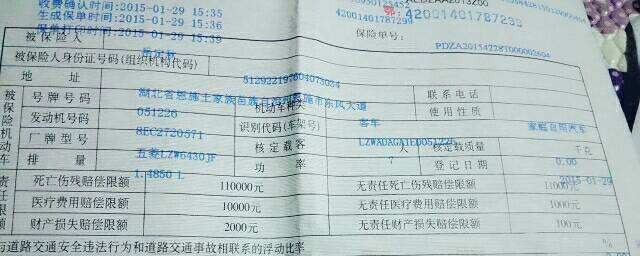 收费确认时间:2015-01-29 15:35
生成保单时间:2015-01-29 15:35
2015-01-29 15:39
鄂:42001401787298
42001401787299
保险单号: PDZA20154228T000002604
被保险人
被保险人身份证号码(组织机构代码)
512922197604073024
地址 湖北省恩施土家族苗族自治州恩施市东风大道 联系电话
号牌号码 机动车种类 客车 使用性质 家庭自用汽车
发动机号码 8EC2720571 识别代码(车架号)
厂牌型号 五菱LZW6430JF 核定载客 7 人 核定载质量 0.00 千克
排量 1.4850 L 功率 登记日期 2015-01-29
死亡伤残赔偿限额 110000元 无责任死亡伤残赔偿限额 11000元
医疗费用赔偿限额 10000元 无责任医疗费用赔偿限额 1000元
财产损失赔偿限额 2000元 无责任财产损失赔偿限额 100元
与道路交通安全违法行为和道路交通事故相联系的浮动比率